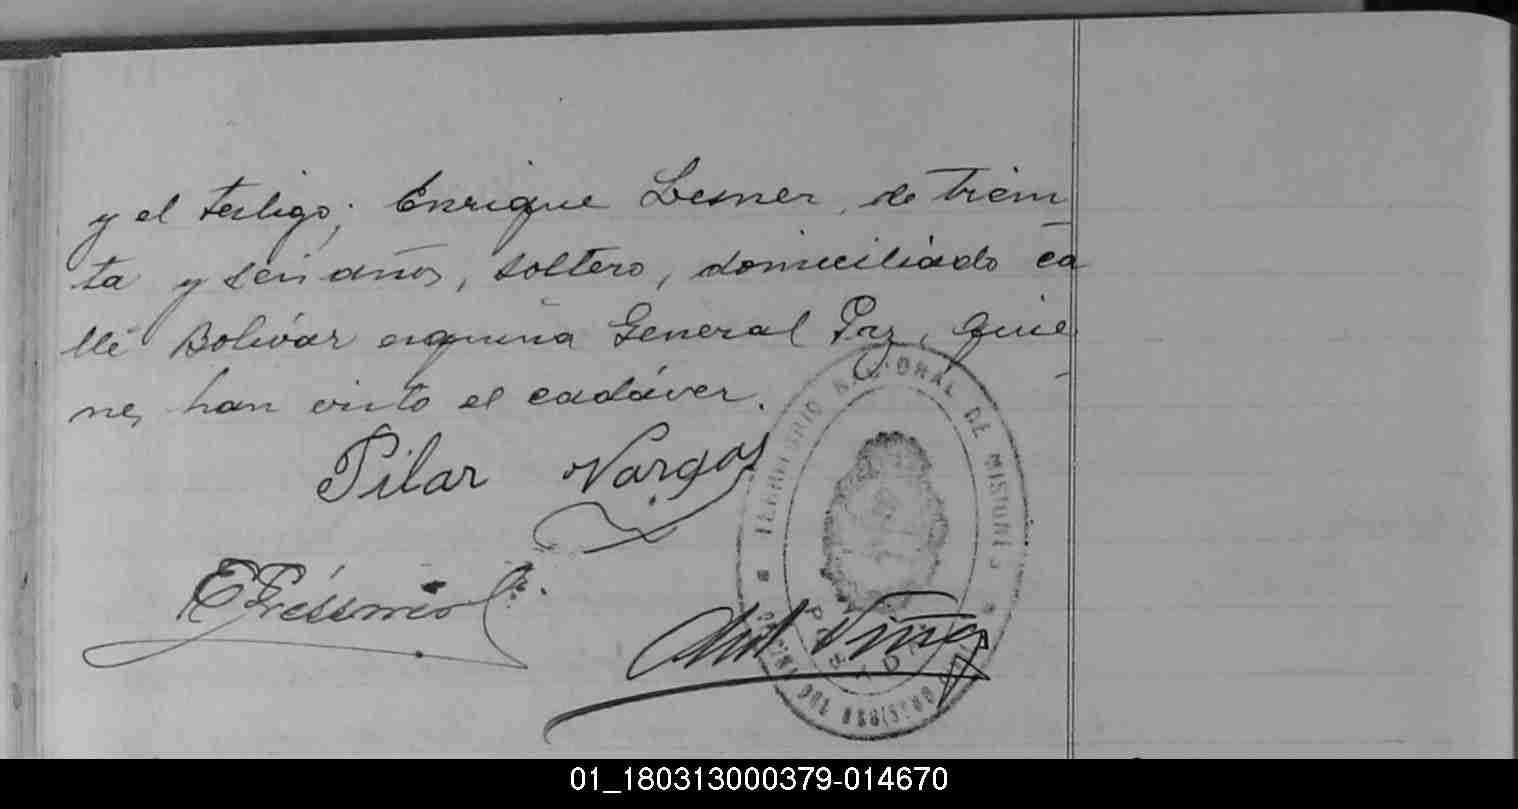 y el testigo; Enrique Lesner, de trein
ta y seis años, soltero, domiciliado ca
lle Bolivar esquina General Paz, quie
nes han visto el cadáver.
Pilar Vargas
TERRITORIO NACIONAL DE MISIONES
POSADAS
01_180313000379-014670